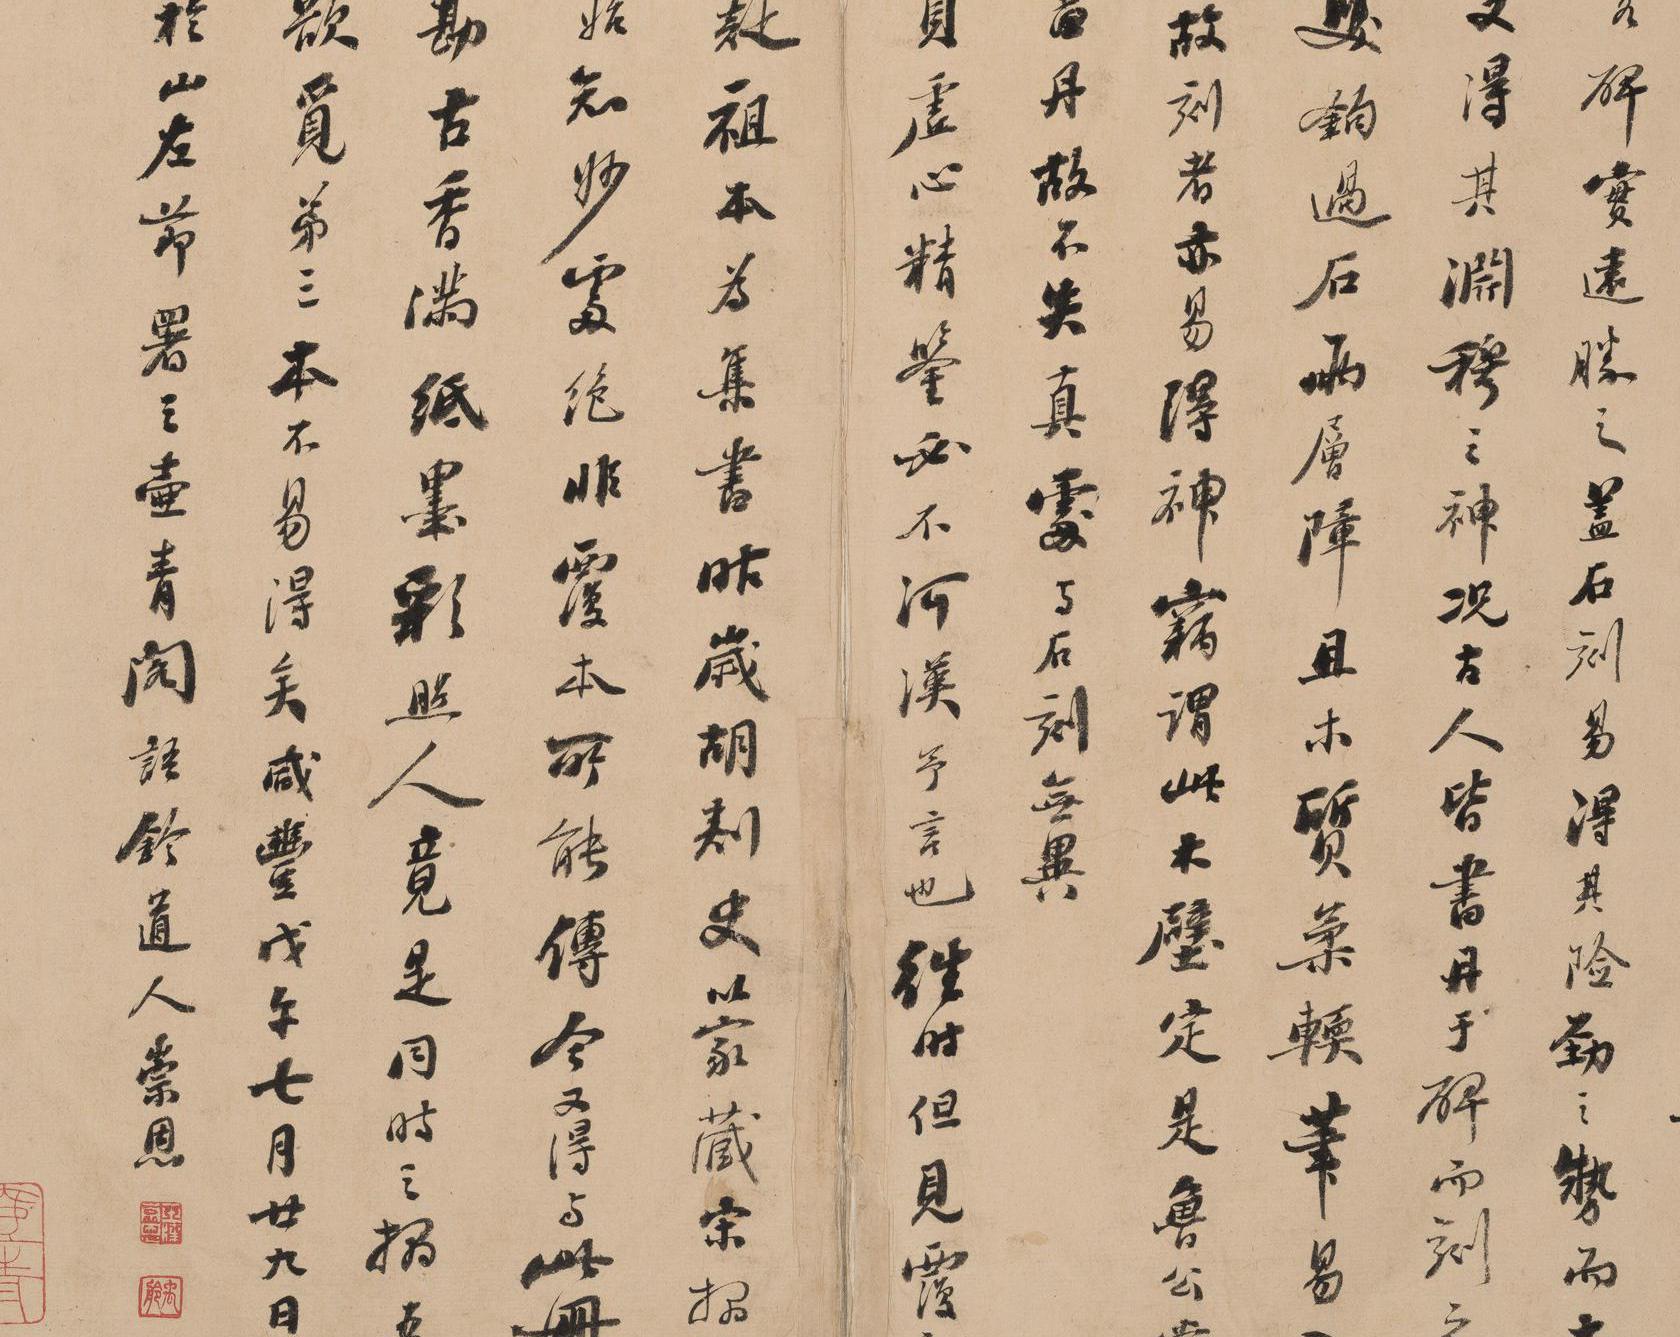 碑實遠勝之蓋石刻易得其險勁之勢而
又得其淵穆之神況古人皆書丹于碑而刻之
雙鉤過石兩層障且木質柔輭筆易
故刻者亦易得神竊謂此木壁定是魯公
書丹故不失真處与石刻無異
員虛心精鑒必不河漢予言也往時但見覆
祖本為集書昨歲胡刺史以家藏宋搨
始知妙處絕非覆本所能傳今又得与此冊
勘古香滿紙墨彩照人竟是同時之搨
欲覓第三本不易得矣咸豐戊午七月廿九日
於山左節署之壺青閣語鈴道人崇恩